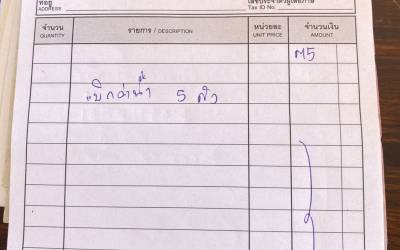 ที่อยู่ เลขประจำตัวผู้เสียภาษี
ADDRESS Tax ID No.
จำนวน รายการ / DESCRIPTION หน่วยละ จำนวนเงิน
QUANTITY UNIT PRICE AMOUNT
5 ตัว